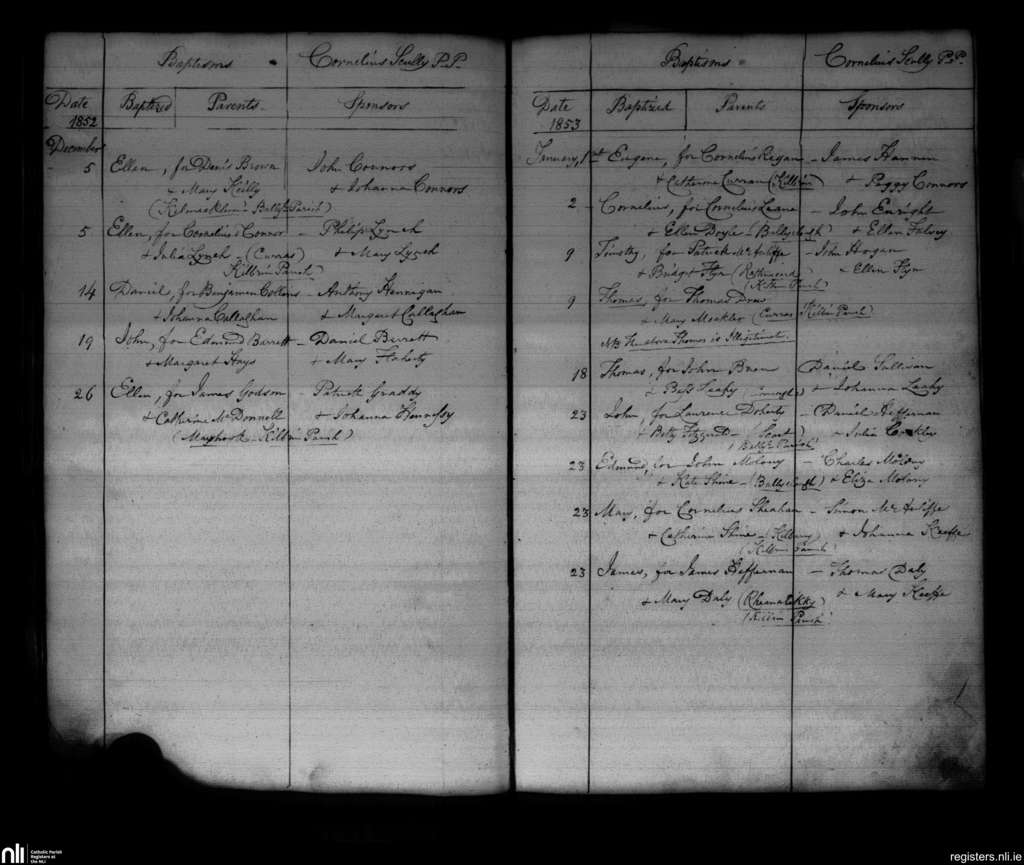 Baptisms Cornelius Scully P.P.
Date Baptized Parents Sponsors
1852
December
5 Ellen, for Den's Brown John Connors
& Mary Reilly & Johanna Connors
Parish)
5 Ellen, for Cornelius Connor – Philip Lynch
& Julia Lynch – (Curras) & Mary Lynch
Killrin Parish)
14 Daniel, for Benjamen Collons – Anthony Hannigan
& Johanna Callaghan & Margaret Callaghan
19 John, for Edmond Barrett – Daniel Barrett
& Margaret Hays & Mary Flaherty
26 Ellen, for James Godson – Patrick Graddy
& Catherine McDonnell & Johanna Hennessy
(Mayhook Killrin Parish)
Baptisms Cornelius Scully P.P.
Date Baptized Parents Sponsors
1853
January, 1st Eugene, for Cornelius Regan – James Hannen
& Catherine Curran (Killrin) & Peggy Connors
2 – Cornelius, for Cornelius Leane – John Enright
& Ellen Doyle (Ballyclough) & Ellen Falvey
9 Timothy, for Patrick McAuliffe – John Horgan
& Bridget Flyn & Ellen Flyn
Parish)
9 Thomas, for Thomas Drew
& Mary Mockler (Curras Killrin Parish)
NB The above Thomas is Illigitimate.
18 Thomas, for John Breen Daniel Sullivan
& Bess Leahy & Johanna Leahy
23 John, for Laurence Doherty – Daniel Heffernan
& Betty Fitzgerald – – Julia
Parish)
23 Edmund, for John Molony – Charles Molony
& Kate Shine – (Ballyclough) & Eliza Molony
23 Mary, for Cornelius Sheahan – Simon McAuliffe
& Catherine Shine & Johanna Keeffe
(Killrin Parish)
23 James, for James Heffernan – Thomas Daly
& Mary Daly & Mary Keeffe
(Killrin Parish)
nli Catholic Parish
Registers at
the NLI
registers.nli.ie